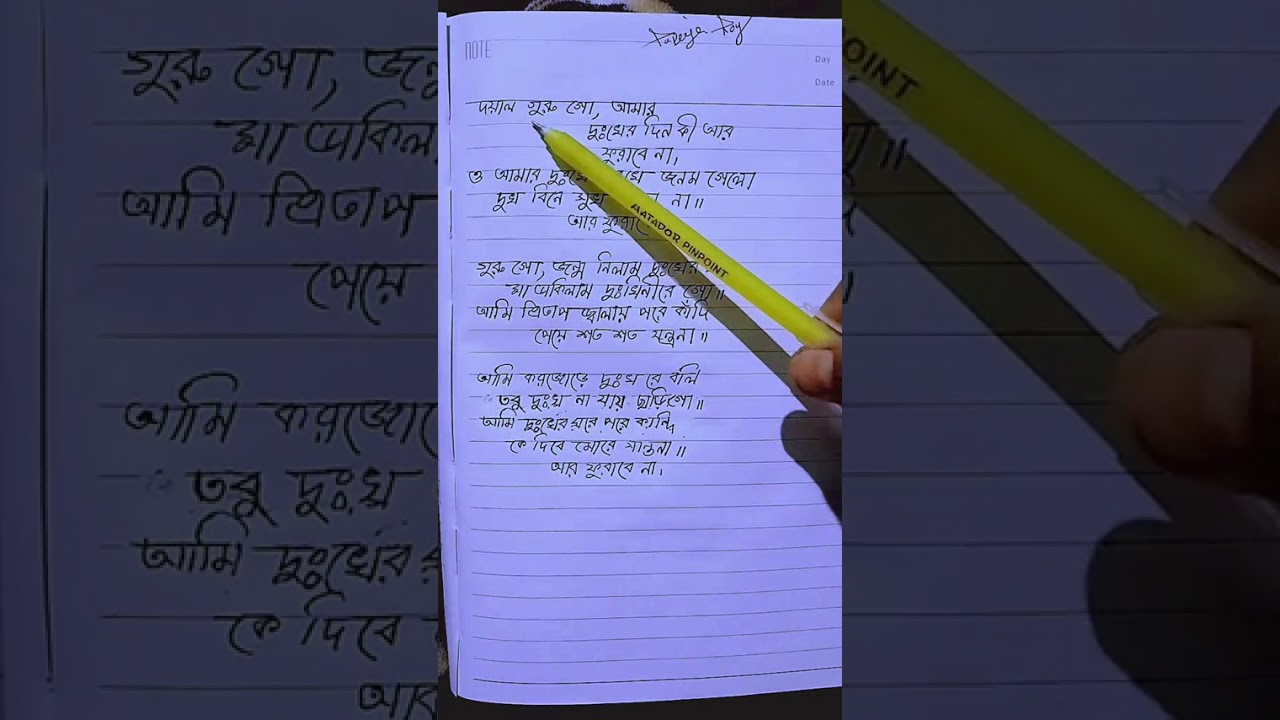 NOTE
Day
Date
দয়াল গুরু গো, আমার
দুঃখের দিন কী আর
ফুরাবে না,
ও আমার জনম গেলো
দুখ বিনে সুখ না॥
আর
গুরু গো, জন্ম নিলাম দুঃখের
মা ডাকিলাম দুঃখিনীরে গো॥
আমি ত্রিতাপ জ্বালায় পরে কাঁদি
পেয়ে শত শত যন্ত্রনা॥
আমি করজোড়ে দুঃখ রে বলি
তবু দুঃখ না যায় ছাড়িগো॥
আমি দুঃখের ঘরে পরে কান্দি
কে দিবে মোরে শান্তনা॥
আর ফুরাবে না।
MATADOR PINPOINT